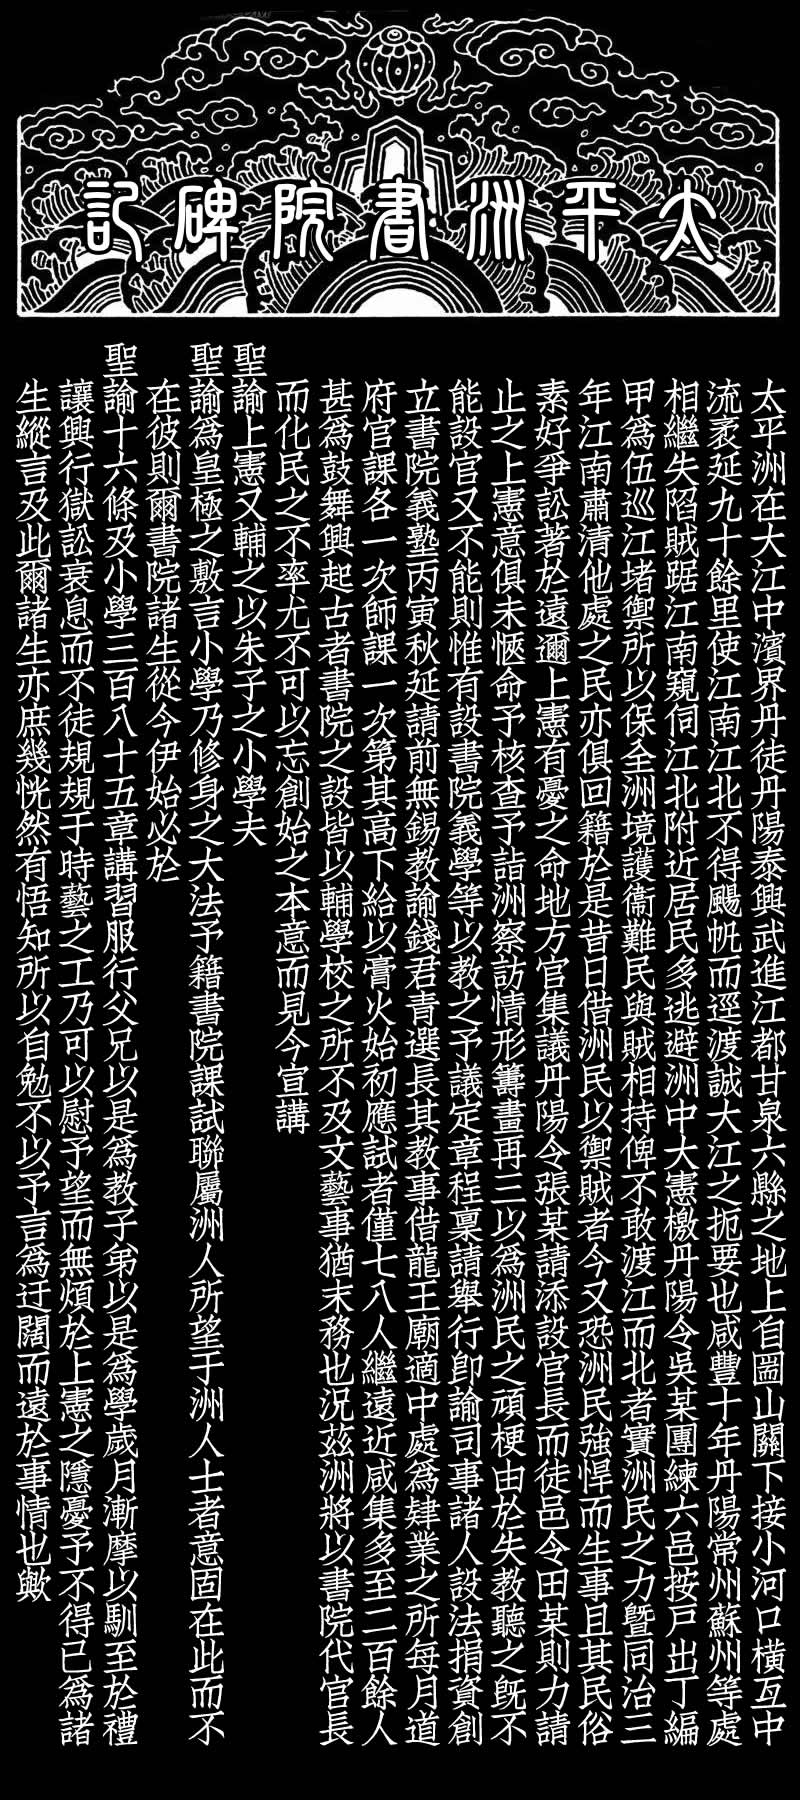 太平洲書院碑記
太平洲在大江中濱界丹徒丹陽泰興武進江都甘泉六縣之地上自圌山關下接小河口橫亙中
流袤延九十餘里使江南江北不得颺帆而逕渡誠大江之扼要也咸豐十年丹陽常州蘇州等處
相繼失陷賊踞江南窺伺江北附近居民多逃避洲中大憲檄丹陽令吳某團練六邑按戶出丁編
甲為伍巡江堵禦所以保全洲境護衞難民與賊相持俾不敢渡江而北者實洲民之力暨同治三
年江南肅清他處之民亦俱回籍於是昔日借洲民以禦賊者今又恐洲民強悍而生事且其民俗
素好爭訟著於遠邇上憲有憂之命地方官集議丹陽令張某請添設官長而徒邑令田某則力請
止之上憲意俱未愜命予核查予詣洲察訪情形籌畫再三以為洲民之頑梗由於失教聽之既不
能設官又不能則惟有設書院義學等以教之予議定章程稟請舉行卽諭司事諸人設法捐資創
立書院義塾丙寅秋延請前無錫教諭錢君青選長其教事借龍王廟適中處為肄業之所每月道
府官課各一次師課一次第其高下給以膏火始初應試者僅七八人繼遠近咸集多至二百餘人
甚為鼓舞興起古者書院之設皆以輔學校之所不及文藝事猶末務也況茲洲將以書院代官長
而化民之不率尤不可以忘創始之本意而見今宣講
聖諭上憲又輔之以朱子之小學夫
聖諭為皇極之敷言小學乃修身之大法予籍書院課試聯屬洲人所望于洲人士者意固在此而不
在彼則爾書院諸生從今伊始必於
聖諭十六條及小學三百八十五章講習服行父兄以是為教子弟以是為學歲月漸摩以馴至於禮
讓興行獄訟衰息而不徒規規于時藝之工乃可以慰予望而無煩於上憲之隱憂予不得已為諸
生縱言及此爾諸生亦庶幾恍然有悟知所以自勉不以予言為迂闊而遠於事情也歟